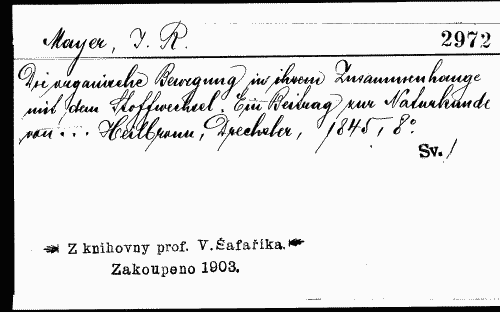 Mayer, J. R.
2972
Die organische Bewegung in ihrem Zusammenhange
mit dem Stoffwechsel. Ein Beitrag zur Naturkunde
von ... Heilbronn, Drechsler, 1845, 8°
Sv. /
Z knihovny prof. V. Šafaříka.
Zakoupeno 1903.